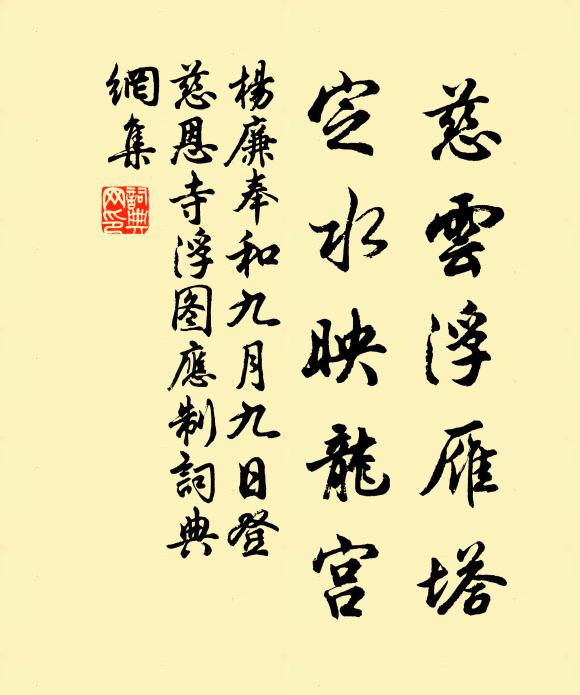 慈雲浮雁塔
定水映龍宫
楊廉奉和九月九日登
慈恩寺浮图應制詞典
網集
詞典网印